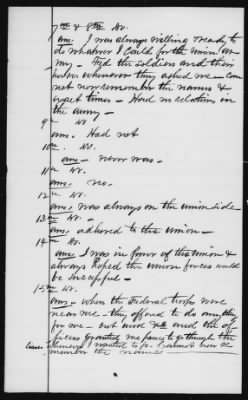 7th & 8th Do.
Ans. I was always willing & ready to
do whatever I could for the union ar
my - Fed the soldiers and their
horses whenever they asked me - can
not now remember the names &
exact times - Had no relation in
the army -
9th Do
ans. Had not
10th. Do.
ans - never was -
11th Do.
ans. no.
12th Do.
ans. was always on the union side
13th Do. -
ans. adhered to the union -
14th Do.
ans I was in favor of the union &
always hoped the union forces would
be successful -
15th Do.
ans - when the Federal troops were
near me - they offered to do anything
for me - and the of
ficers granted me passes to go through the
lines when I wanted to go. Cannot now re
member the names